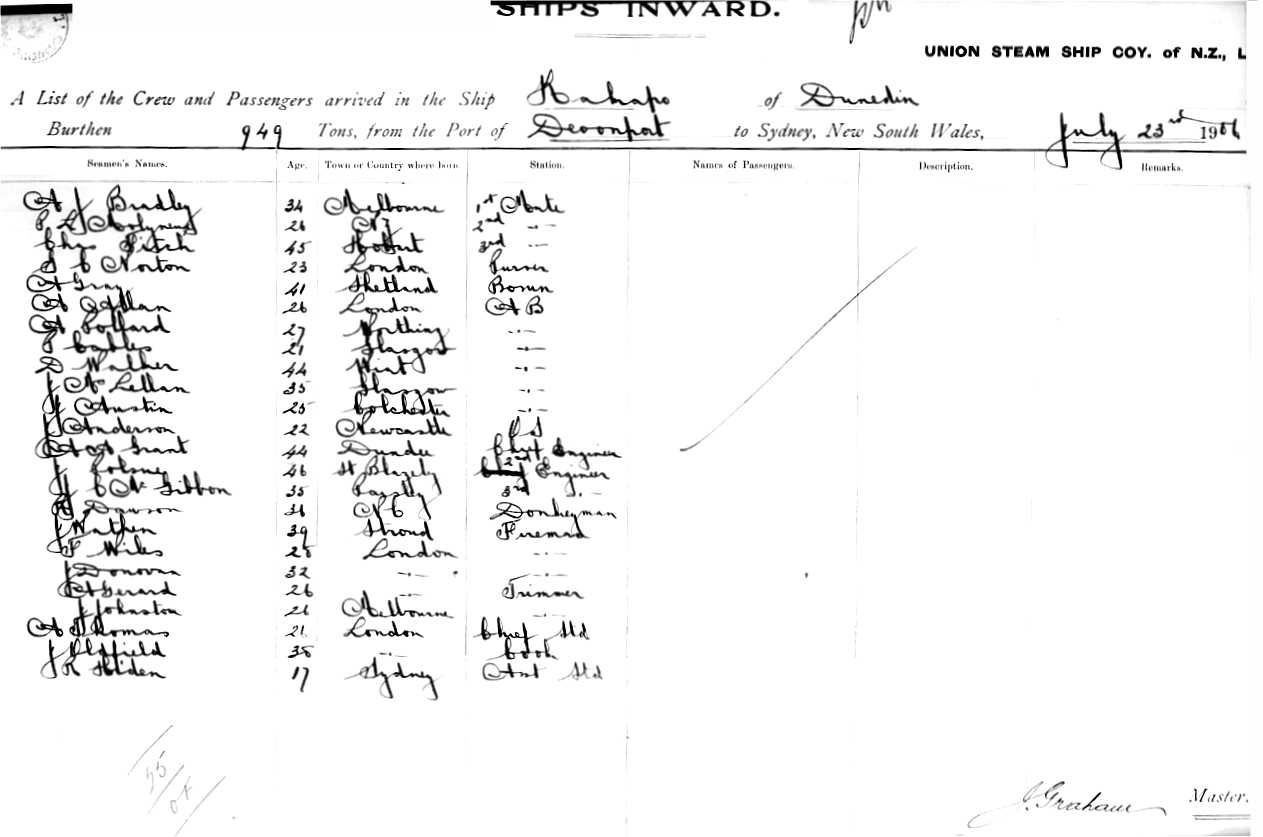 SHIPS INWARD.
UNION STEAM SHIP COY. of N.Z., L
A List of the Crew and Passengers arrived in the Ship Kahapo of Dunedin
Burthen 949 Tons, from the Port of Devonport to Sydney, New South Wales, July 23rd 1906
Seamen's Names. Age. Town or Country where born Station. Names of Passengers. Description. Remarks.
A J Bradley 34 Melbourne 1st Mate
P L Molyneux 26 NZ 2nd -"-
Chas Fitch 45 Hobart 3rd -"-
S C Norton 23 London Purser
A Gray 41 Shetland Bosun
A Allan 26 London A B
A Pollard 27 Worthing -"-
P Cables 21 Glasgow -"-
D Walker 44 -"-
J McLellan 35 Glasgow -"-
Austin 25 Colchester -"-
J Anderson 22 Newcastle O S
A A Grant 44 Dundee Chief Engineer
J 46 St Blazely 2nd Engineer
J C McGibbon 35 Paisley 3rd -"-
Dawson 36 Donkeyman
J Wathen 39 Stroud Fireman
F Wiles London -"-
J Donovan 32 -"- -"-
A Gerard 26 -"- Trimmer
J Johnston 21 Melbourne -"-
A Thomas 21 London Chief Std
J Oldfield 35 -"- Cook
J R Holden 17 Sydney Asst Std
J. Graham Master.